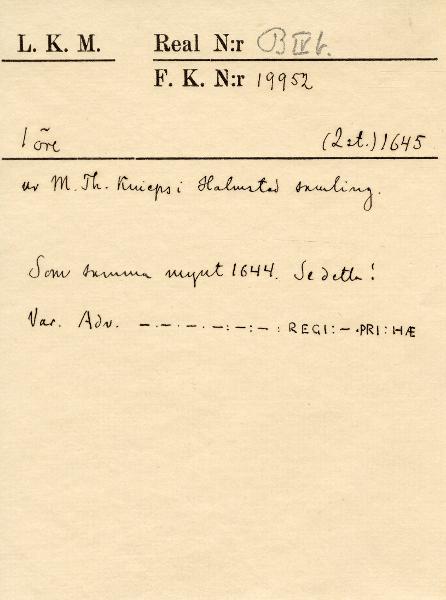 L. K. M. Real N:r B IV b.
F. K. N:r 19952
1 öre (2 st.) 1645
ur M. Th. Knieps i Halmstad samling.
Som samma mynt 1644. Se detta!
Var. Adv. —·—·—·—:—:—: REGI:—·PRI:HÆ